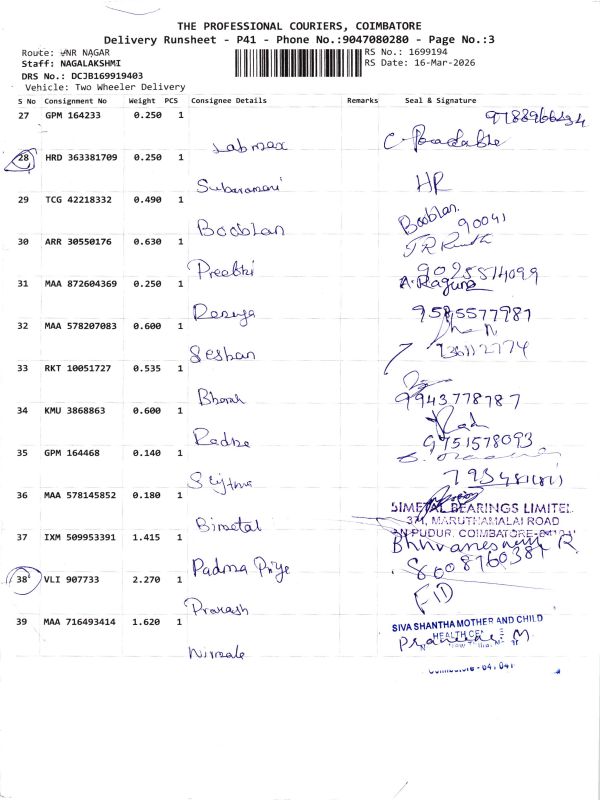 THE PROFESSIONAL COURIERS, COIMBATORE
Delivery Runsheet - P41 - Phone No.:9047080280 - Page No.:3
Route: ANR NAGAR
RS No.: 1699194
Staff: NAGALAKSHMI
RS Date: 16-Mar-2026
DRS No.: DCJB169919403
Vehicle: Two Wheeler Delivery
S No Consignment No Weight PCS Consignee Details Remarks Seal & Signature
27 GPM 164233 0.250 1
Labmax
28 HRD 363381709 0.250 1
Subaramani HR
29 TCG 42218332 0.490 1
Booblan Booblan 90041
30 ARR 30550176 0.630 1
Preethi 9025514099
31 MAA 872604369 0.250 1 A. Raguna
9585577981
32 MAA 578207083 0.600 1
Seshan
33 RKT 10051727 0.535 1
Bharah 9943778787
34 KMU 3868863 0.600 1
Radha 9751578093
35 GPM 164468 0.140 1
36 MAA 578145852 0.180 1
Bimetal
BIMETAL BEARINGS LIMITED
371, MARUTHAMALAI ROAD
PUDUR, COIMBATORE
37 IXM 509953391 1.415 1
Padma Priya 8008760387
38 VLI 907733 2.270 1
Prakash
39 MAA 716493414 1.620 1
SIVA SHANTHA MOTHER AND CHILD
Nirmala